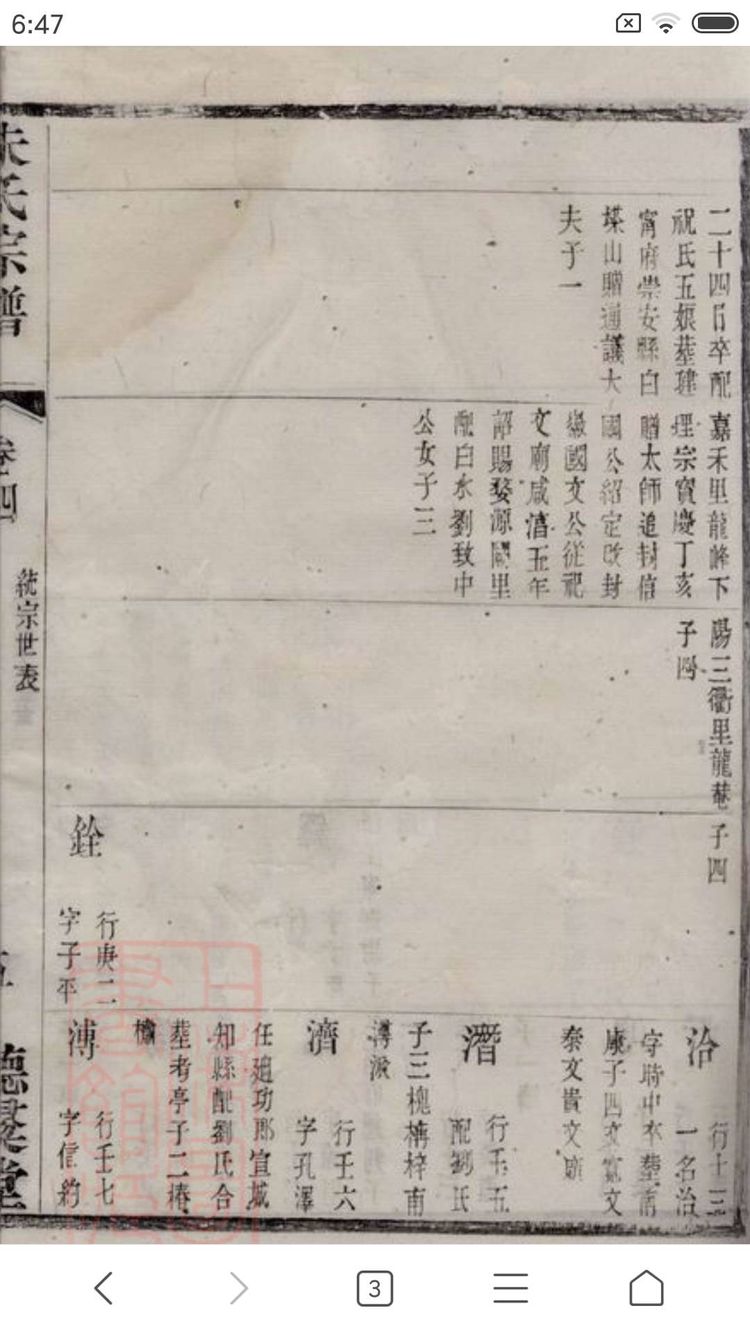 6:47
二十四日卒配
祝氏五娘塟建
寕府崇安縣白
塔山贈通議大
夫子一
嘉禾里龍峰下
理宗寳慶丁亥
贈太師追封信
國公紹定改封
徽國文公從祀
文廟咸湻五年
詔賜婺源闕里
配白水劉致中
公女子三
陽三衢里龍菴
子四
子四
銓
行庚二
字子平
洽
行十三
一名治
字時中卒塟南
康子四文寛文
泰文貴文
潛
行壬五
配劉氏
子三槐構梓南
潯派
濟
行壬六
字孔澤
任廸功郎宣城
知縣配劉氏合
塟考亭子二椿
溥
行壬七
字信約
朱氏宗譜
卷四
統宗世表
五
德馨堂
3